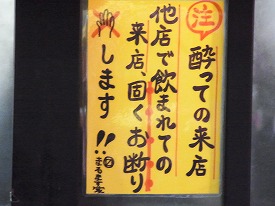 注
酔っての来店
他店で飲まれての
来店、固くお断り
します!!